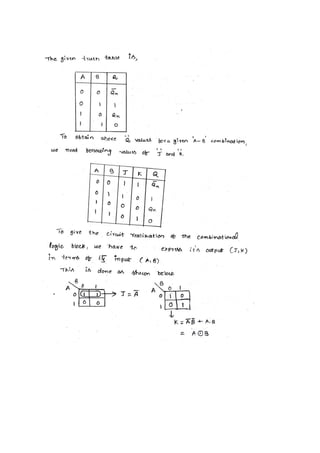 The given truth table is,
A B Q
0 0 Q̅n
0 1 1
1 0 Qn
1 1 0
To obtain above 'Q' values for a given 'A-B' combination,
we need following values of 'J' and 'K'.
A B J K Q
0 0 1 1 Q̅n
0 1 1 0 1
1 0 0 0 Qn
1 1 0 1 0
To give the circuit realization of the combinational
logic block, we have to express it's output (J,K)
in terms of its input (A,B)
This is done as shown below
B B
A 0 1 A 0 1
0 1 1 → J = A̅ 0 1 0
1 0 0 1 0 1
↓
K = A̅B̅ + A.B
= A⊙B